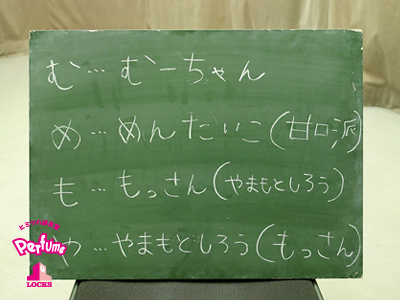 む…むーちゃん
め…めんたいこ(甘口派)
も…もっさん(やまもとしろう)
や…やまもとしろう(もっさん)
Perfume
LOCKS